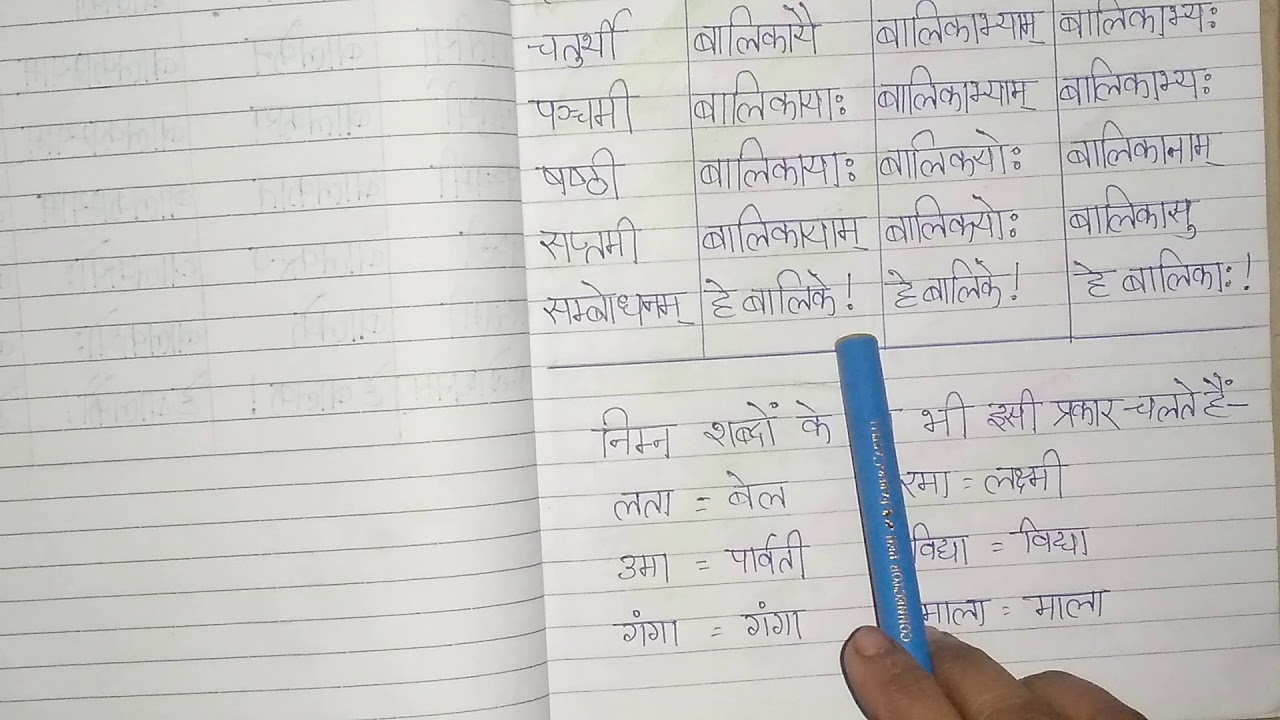 चतुर्थी बालिकायै बालिकाभ्याम् बालिकाभ्यः
पञ्चमी बालिकायाः बालिकाभ्याम् बालिकाभ्यः
षष्ठी बालिकायाः बालिकयोः बालिकानाम्
सप्तमी बालिकायाम् बालिकयोः बालिकासु
सम्बोधनम् हे बालिके! हे बालिके! हे बालिकाः!
निम्न शब्दों के भी इसी प्रकार चलते हैं-
लता = बेल रमा = लक्ष्मी
उमा = पार्वती विद्या = विद्या
गंगा = गंगा माला = माला